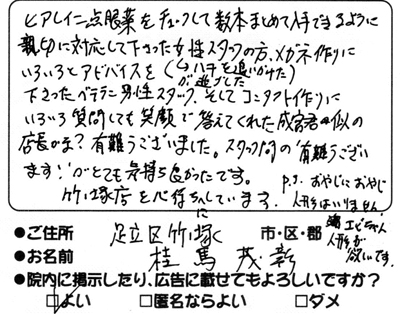 ヒアレイン点眼薬をチェックして数本まとめて入手できるように
親切に対応して下さった女性スタッフの方、メガネ作りに
いろいろとアドバイスを(↳ハチを追いかけた)
が逃げした
下さったベテラン男性スタッフ、そしてコンタクト作りに
いろいろ質問しても笑顔で答えてくれた成宮君似の
店長かな?有難うございました。スタッフ同の'有難うござい
ます!'がとても気持ち良かったです。
竹ノ塚店を心待ちにしています。
P.S. おやじにおやじ
人形はいりません。
エビちゃん
人形が
欲しいです。
●ご住所 足立区竹ノ塚 市・区・郡
●お名前 桂馬 茂・彰
●院内に掲示したり、広告に載せてもよろしいですか?
□よい □匿名ならよい □ダメ